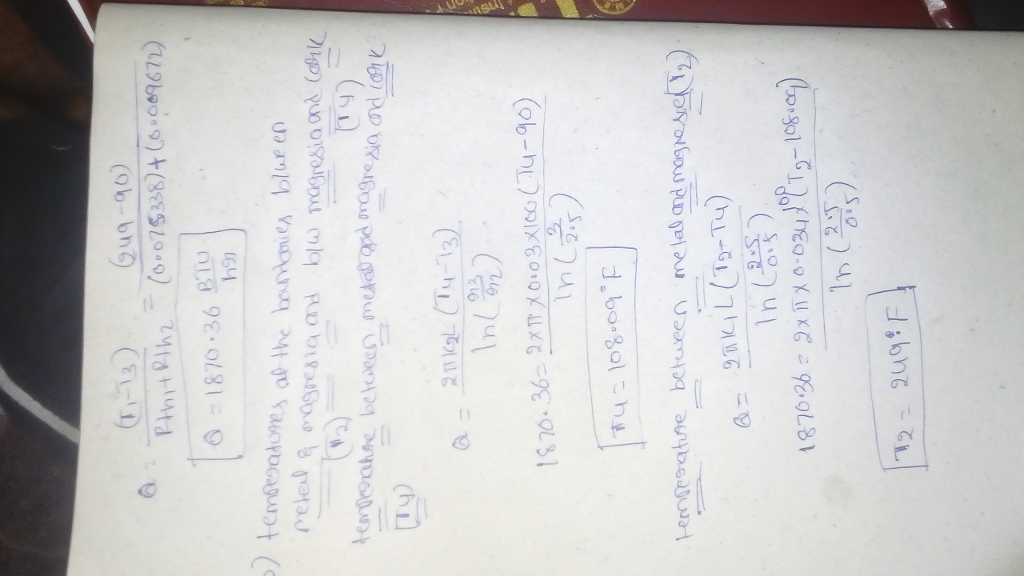 Q = (T1-T3) / (Rth1+Rth2) = (249-90) / ((0.075338)+(0.009672))
Q = 1870.36 BTU/hr
b) temperatures at the boundaries b/ween
metal & magnesia and b/w magnesia and cork
(T2) (T4)
temperature between metal and magnesia and cork
(T4)
Q = 2πK2L (T4-T3) / ln(r3/r2)
1870.36 = 2×π×0.03×100 (T4-90) / ln(3/2.5)
T4 = 108.09°F
temperature between metal and magnesia (T2)
Q = 2πK1L (T2-T4) / ln(2.5/0.5)
1870.36 = 2×π×0.034×100 (T2-108.09) / ln(2.5/0.5)
T2 = 249°F